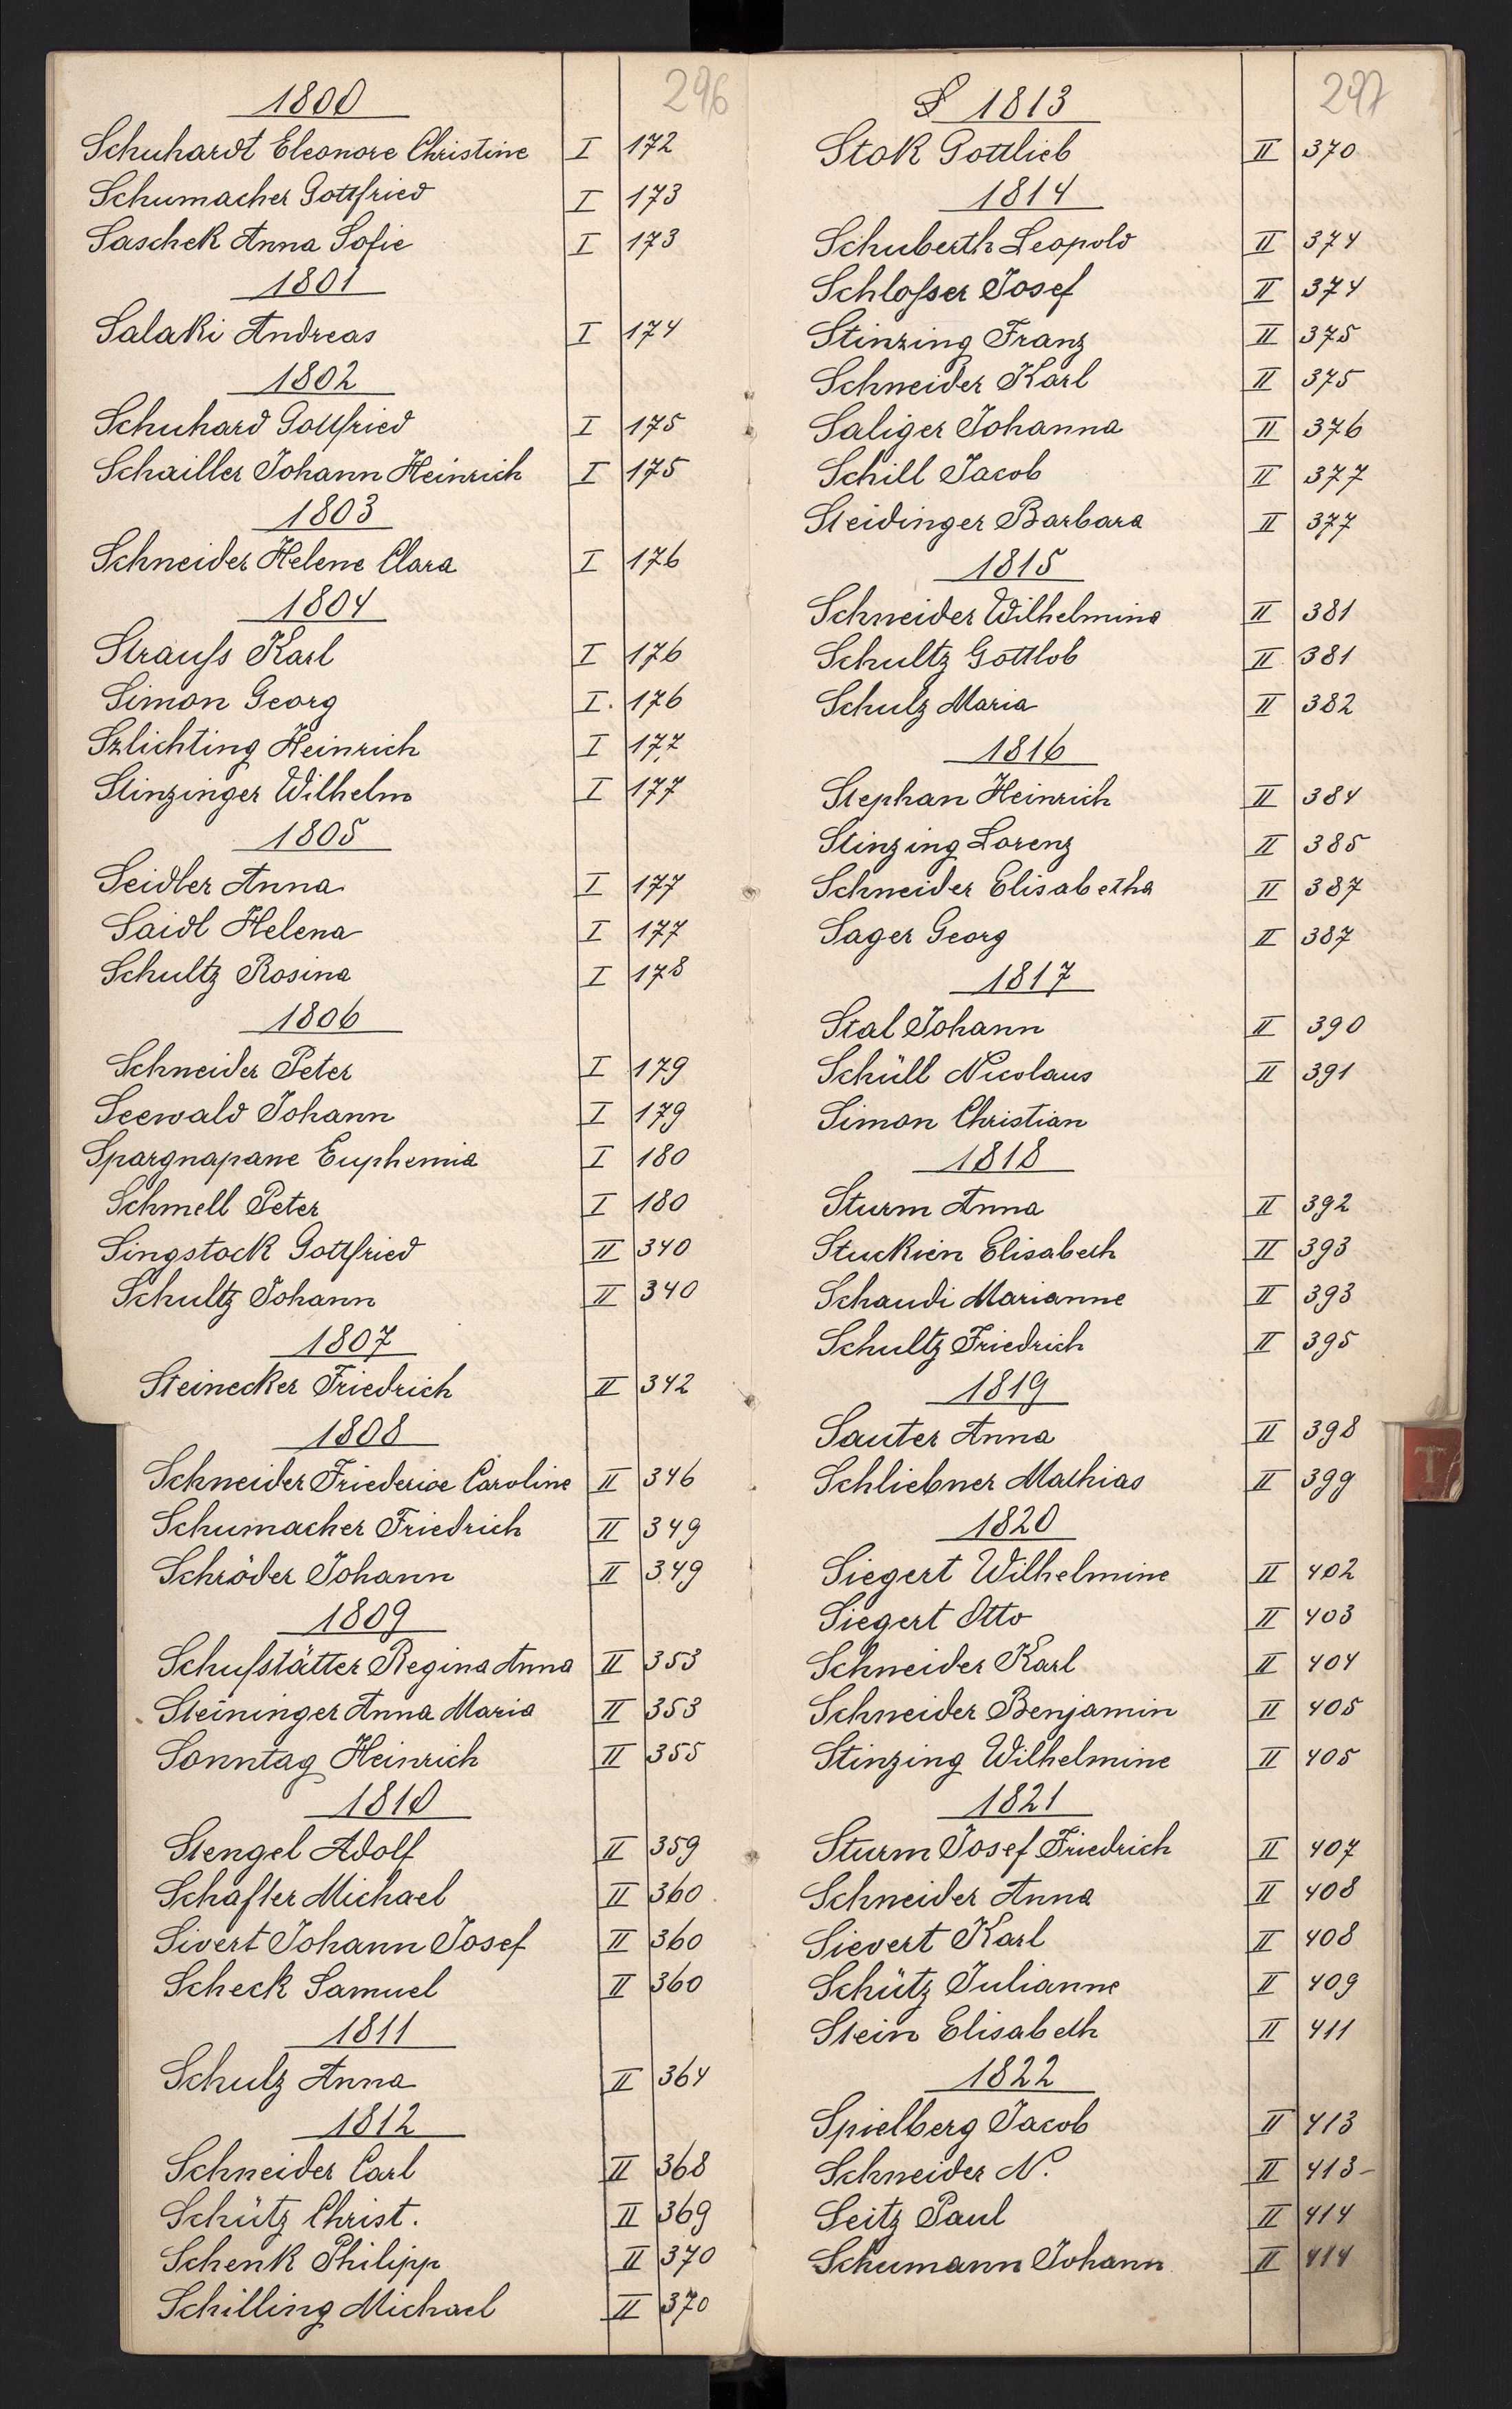 296
1800
Schuhardt Eleonore Christine I 172
Schumacher Gottfried I 173
Saschek Anna Sofie I 173
1801
Salaki Andreas I 174
1802
Schuhard Gottfried I 175
Schailler Johann Heinrich I 175
1803
Schneider Helene Clara I 176
1804
Strauſs Karl I 176
Simon Georg I. 176
Szlichting Heinrich I 177
Stinzinger Wilhelm I 177
1805
Seidler Anna I 177
Saidl Helena I 177
Schultz Rosina I 178
1806
Schneider Peter I 179
Seewald Johann I 179
Spargnapane Euphemia I 180
Schmell Peter I 180
Singstock Gottfried II 340
Schultz Johann II 340
1807
Steinecker Friedrich II 342
1808
Schneider Friederice Caroline II 346
Schumacher Friedrich II 349
Schröder Johann II 349
1809
Schuſstätter Regina Anna II 353
Steininger Anna Maria II 353
Sonntag Heinrich II 355
1810
Stengel Adolf II 359
Schafter Michael II 360
Sivert Johann Josef II 360
Scheck Samuel II 360
1811
Schulz Anna II 364
1812
Schneider Carl II 368
Schütz Christ. II 369
Schenk Philipp II 370
Schilling Michael II 370
297
S 1813
Stok Gottlieb II 370
1814
Schuberth Leopold II 374
Schloſser Josef II 374
Stinzing Franz II 375
Schneider Karl II 375
Saliger Johanna II 376
Schill Jacob II 377
Steidinger Barbara II 377
1815
Schneider Wilhelmina II 381
Schultz Gottlob II 381
Schulz Maria II 382
1816
Stephan Heinrich II 384
Stinzing Lorenz II 385
Schneider Elisabetha II 387
Sager Georg II 387
1817
Stal Johann II 390
Schüll Nicolaus II 391
Simon Christian
1818
Sturm Anna II 392
Stuckien Elisabeth II 393
Schaudi Marianne II 393
Schultz Friedrich II 395
1819
Sauter Anna II 398
Schliebner Mathias II 399
T
1820
Siegert Wilhelmine II 402
Siegert Otto II 403
Schneider Karl II 404
Schneider Benjamin II 405
Stinzing Wilhelmine II 405
1821
Sturm Josef Friedrich II 407
Schneider Anna II 408
Sievert Karl II 408
Schütz Julianne II 409
Stein Elisabeth II 411
1822
Spielberg Jacob II 413
Schneider N. II 413-
Seitz Paul II 414
Schumann Johann II 414